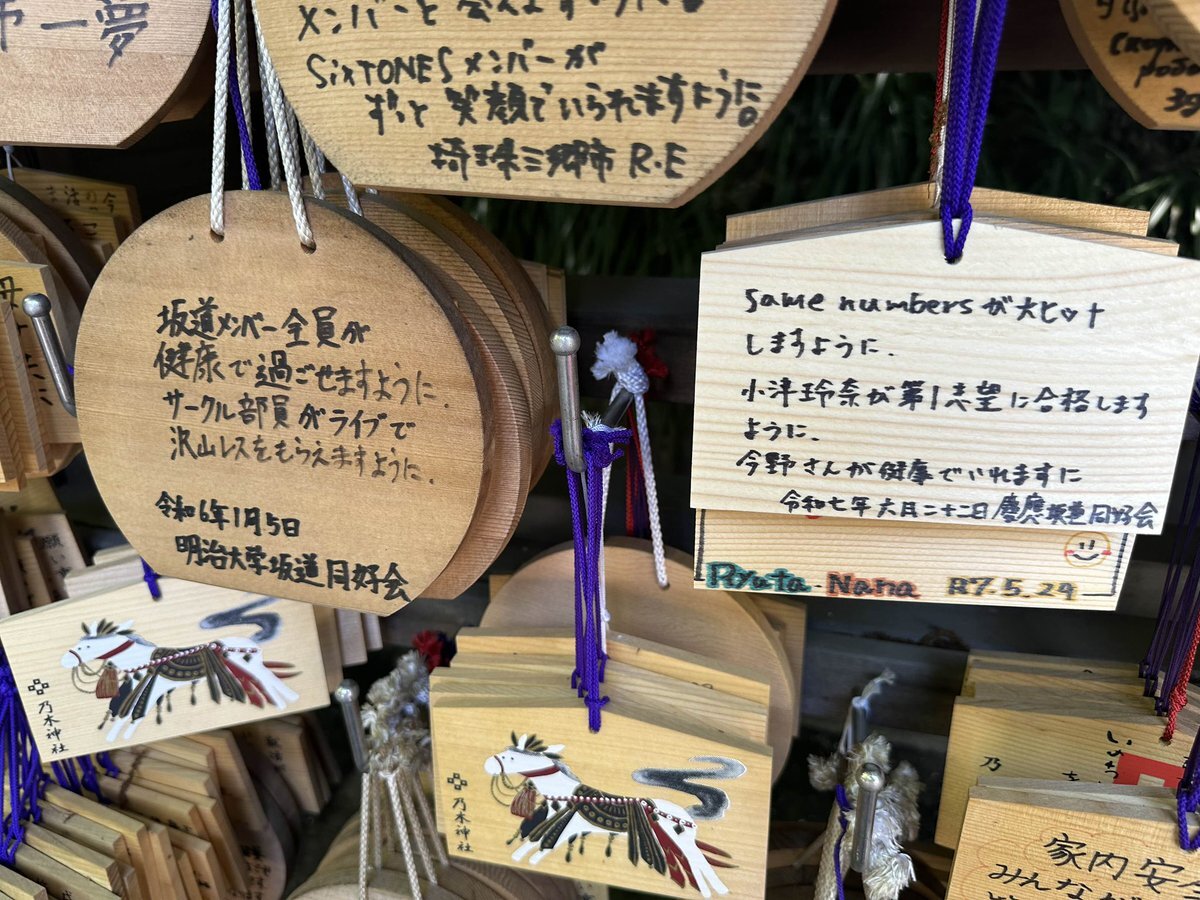 市一夢
メンバーと会えますように。
SixTONESメンバーが
ずっと笑顔でいられますように。
埼玉県三郷市 R・E
坂道メンバー全員が
健康で過ごせますように.
サークル部員がライブで
沢山レスをもらえますように.
令和6年1月5日
明治大学坂道同好会
same numbersが大ヒット
しますように.
小津玲奈が第1志望に合格します
ように.
今野さんが健康でいれますに
令和七年六月二十二日 慶應坂道同好会
Ryuta・Nana R7.5.29
乃木神社
乃木神社
乃
家内安全
みんなが